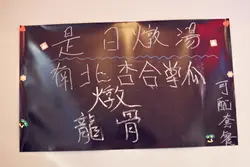 是日燉湯
南北杏合掌瓜
燉
龍骨
可配套餐